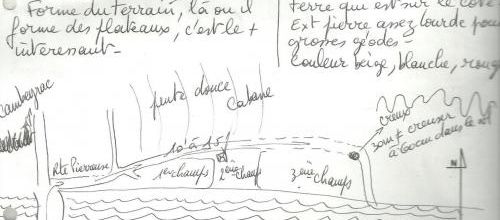 Forme du terrain, là ou il
forme des plateaux, c'est le +
intéressant -
terre qui est sur le côté
Ext pierre assez lourde pour
grosses géodes -
Couleur beige, blanche, rouge
cambeyrac
pente douce
Cabane
creux
30m creuser
à 60cm dans le sol
10 à 15
Rte Pierreuse
1er champs
2ème champs
3ème champs
N